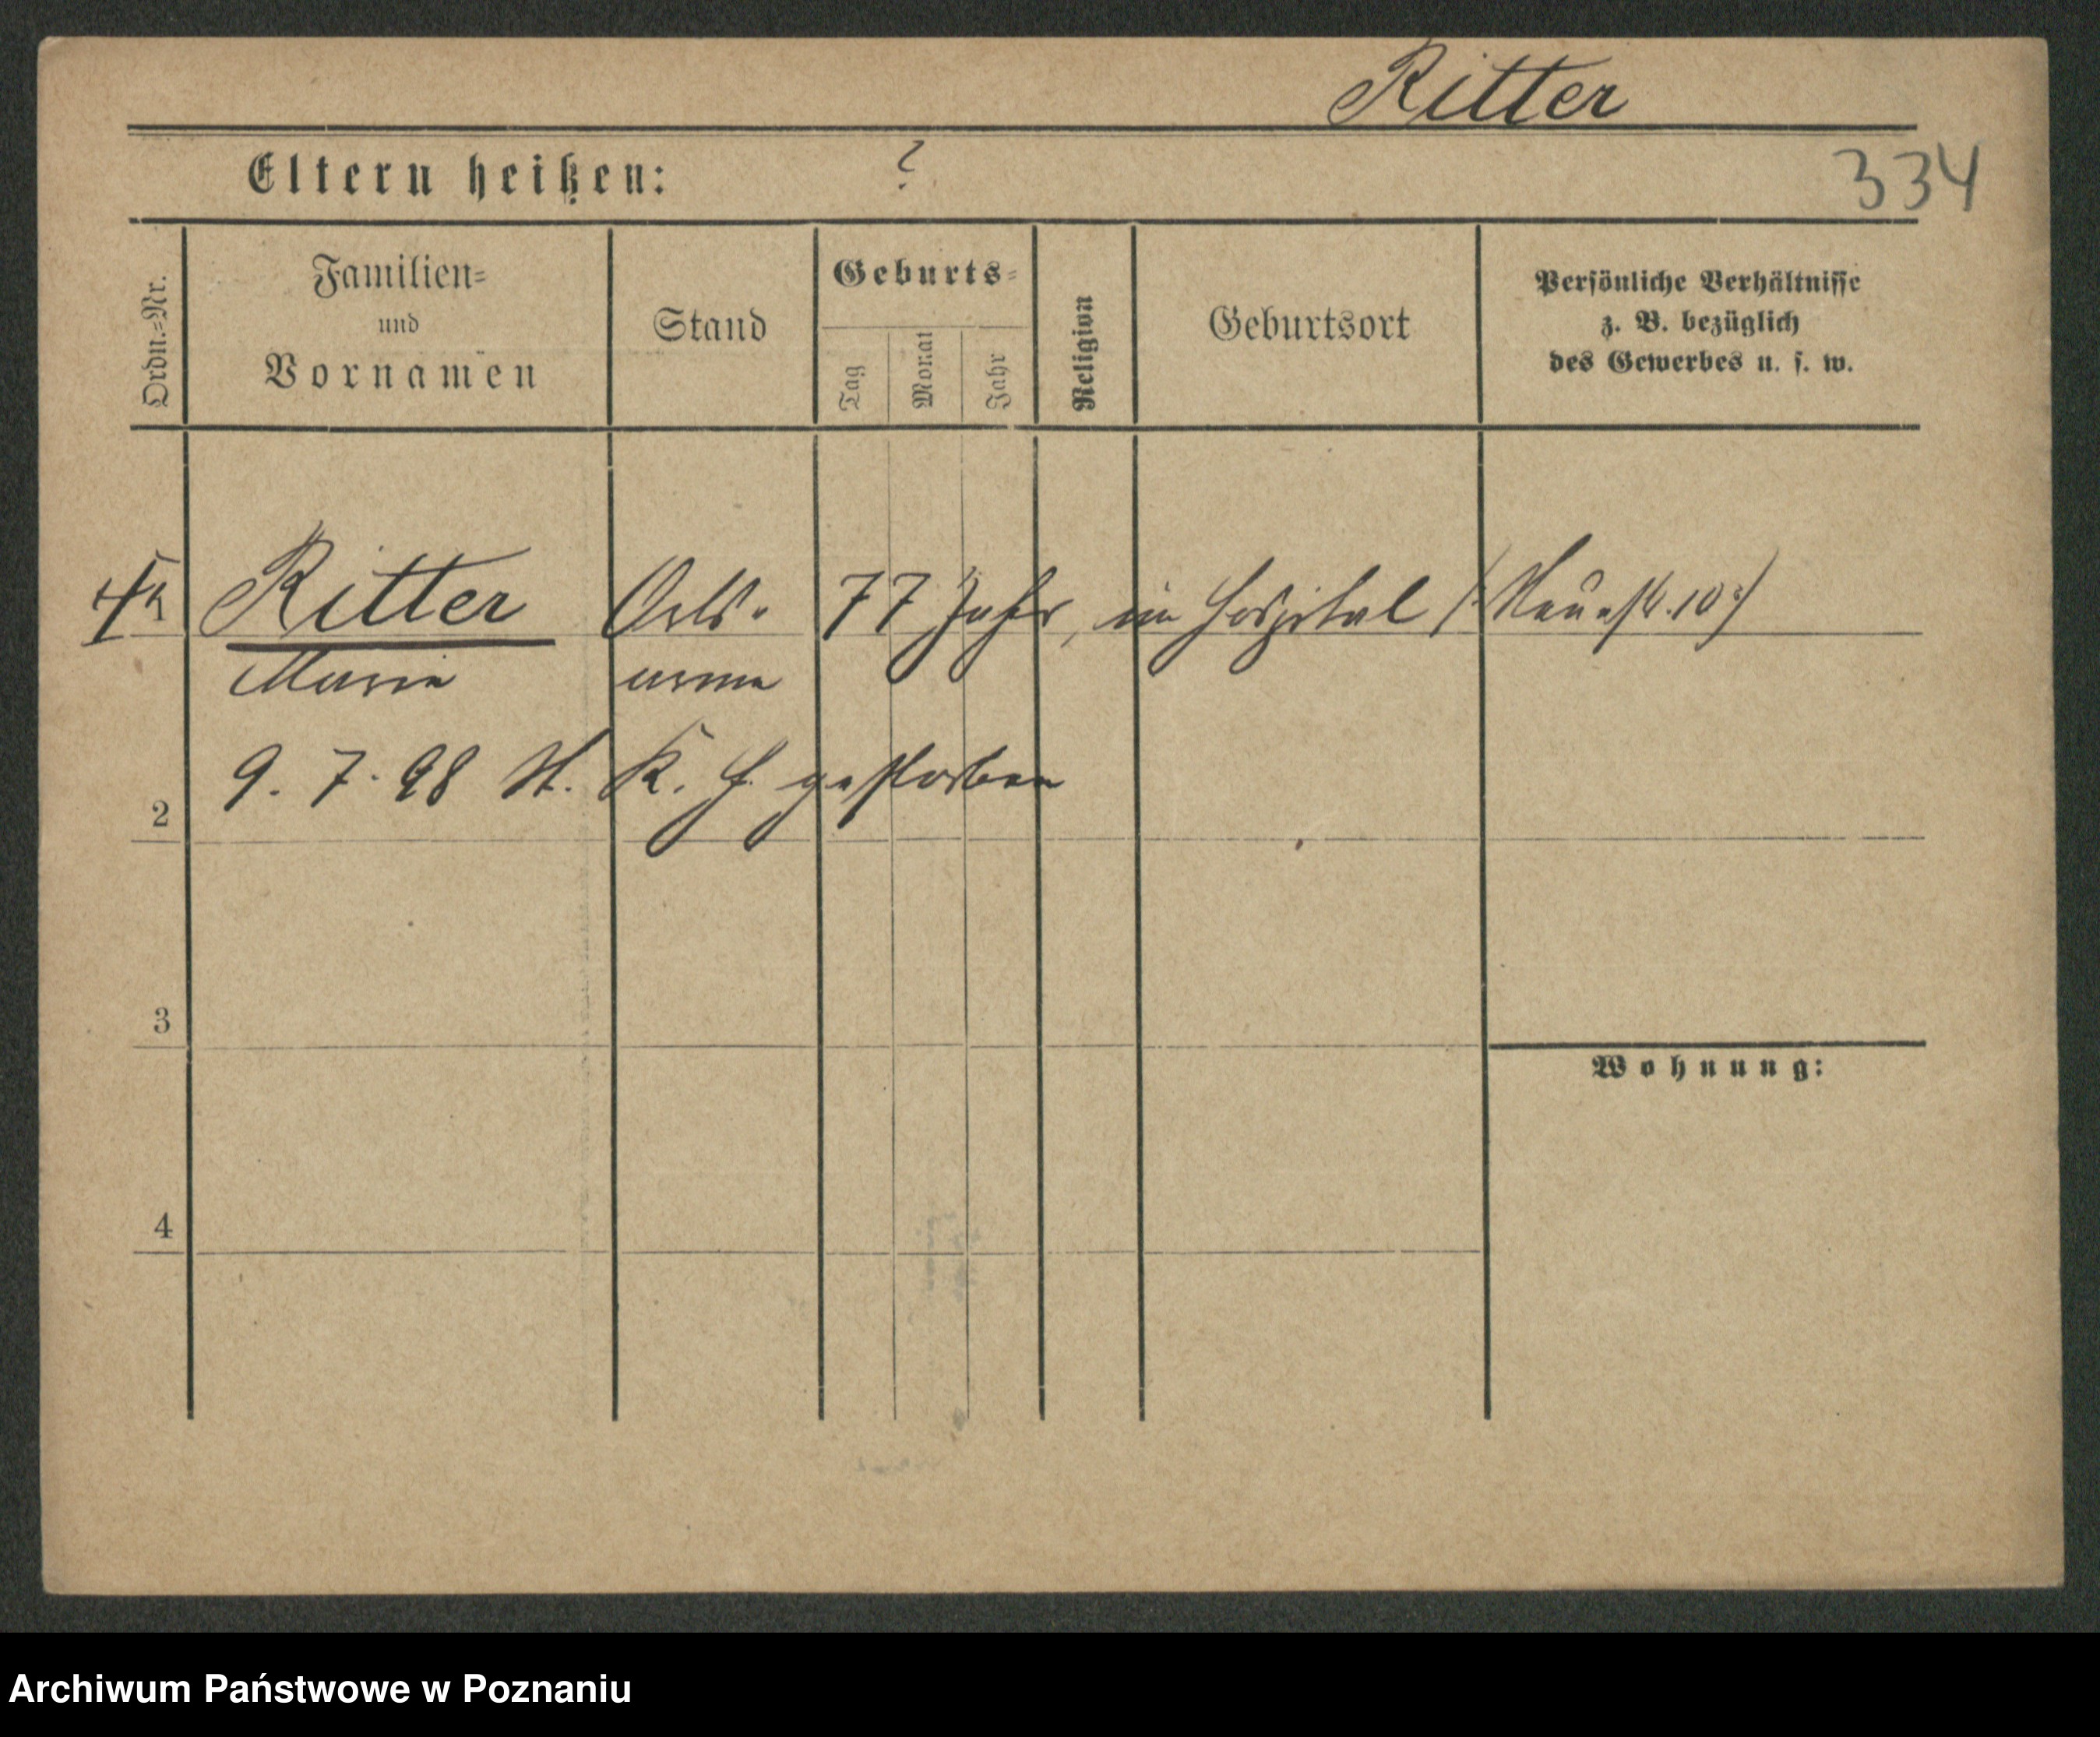 Ritter
Eltern heißen: ?
334
Ordn.-Nr.
Familien-
und
Vornamen
Stand
Geburts-
Tag
Monat
Jahr
Religion
Geburtsort
Persönliche Verhältnisse
z. B. bezüglich
des Gewerbes u. s. w.
Ritter Orts- 77 Jahr, im Hospital
Maria arme
9. 7. 98 St. K. H. gestorben
2
3
Wohnung:
4
Archiwum Państwowe w Poznaniu